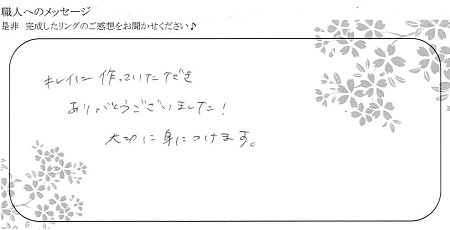 職人へのメッセージ
是非 完成したリングのご感想をお聞かせください♪
キレイに作っていただき
ありがとうございました！
大切に身につけます。